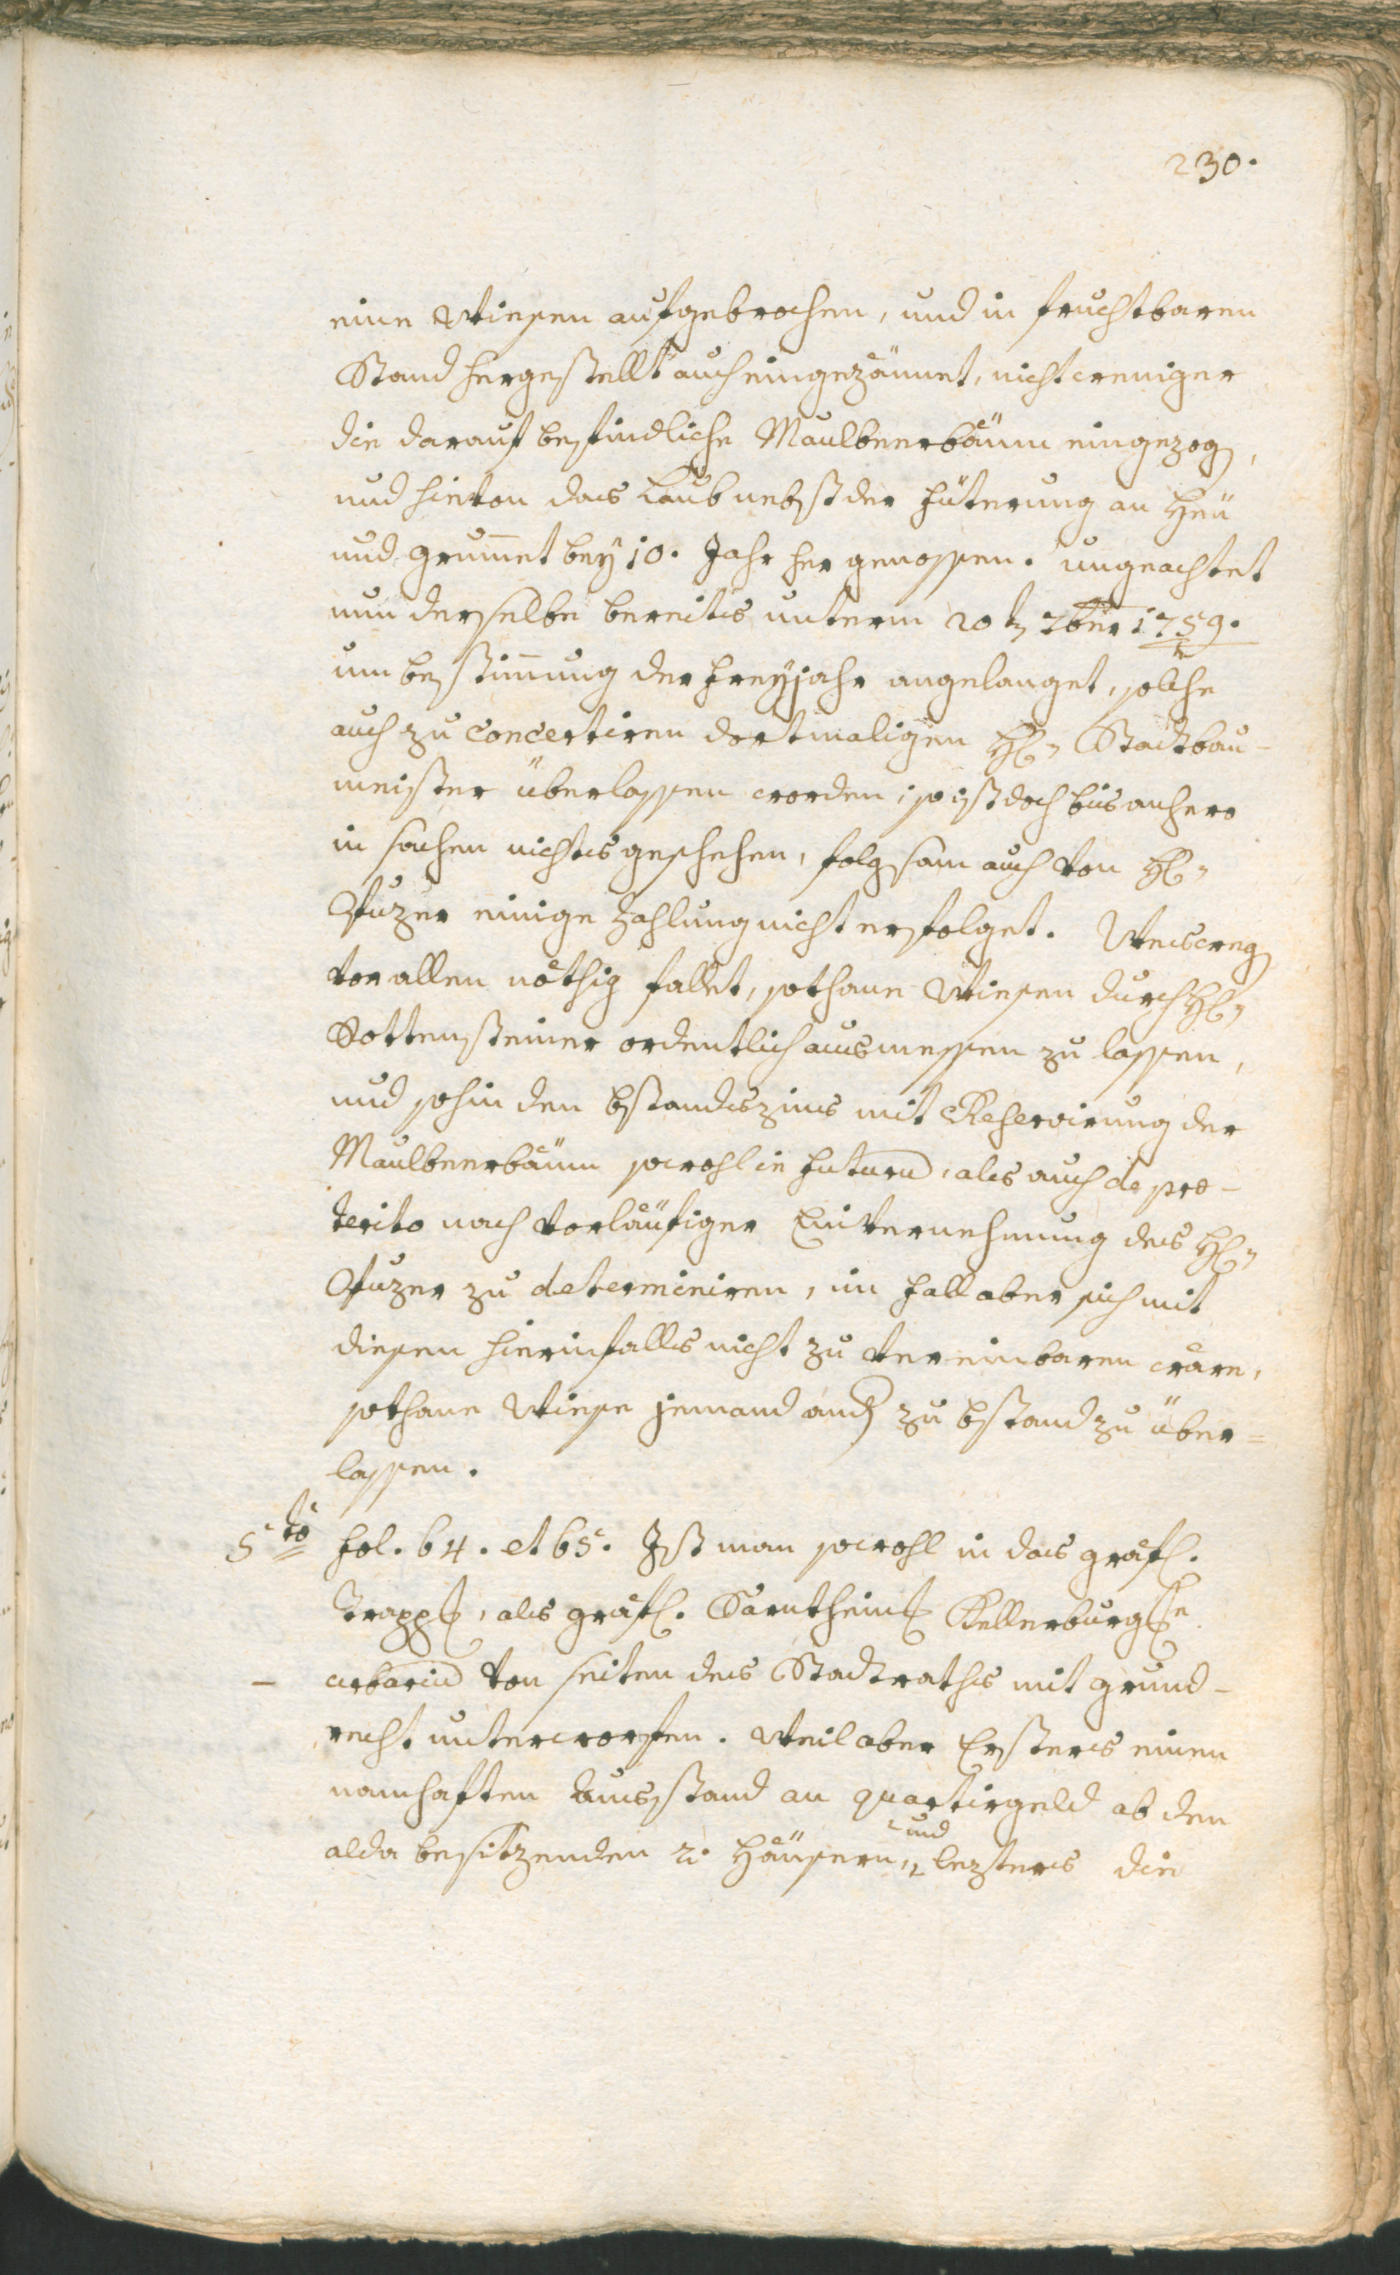 230.
eine Wiesen aufgebrochen, und in fruchtbaren
Stand hergestellt auch eingezäunet, nicht weniger
die darauf befindliche Maulbeerbäum eingezog,
und hievon das Laub nebst der Füterung an Heü
und Grumet bey 10. Jahr her genossen. Ungeachtet
nun derselbe bereits unterm 20t 7ber 1759.
um bestimung der Freyjahr angelanget, solche
auch zu concertiren dortmaligen H: Stadtbau-
meister überlassen worden; so ist doch bis anhero
in sachen nichts geschehen, folgsam auch von H:
Puzer einige Zahlung nicht erfolget. Wesweg
vor allen nöthig fallet, sothane Wiesen durch H:
Gottensteiner ordentlich ausmessen zu lassen,
und sohin den bstandszins mit Reservirung der
Maulbeerbäum sowohl in futuru, als auch de pre-
terito nach vorläufiger Einvernehmung des H:
Puzer zu determiniren, im fall aber sich mit
diesen hierinfalls nicht zu vereinbaren wäre,
sothane Wiese jemand and zu bstand zu über=
lassen.
5to fol. 64. et 65. Ist man sowohl in das gräfl.
Trapp, als gräfl. Sarntheim Kellerburg
- urbariu von seiten des Stadtraths mit grund-
recht unterworfen. Weil aber Ersteres einen
namhaften Ausstand an quartirgeld ab den
alda besitzenden 2. Häusern, und lezteres die